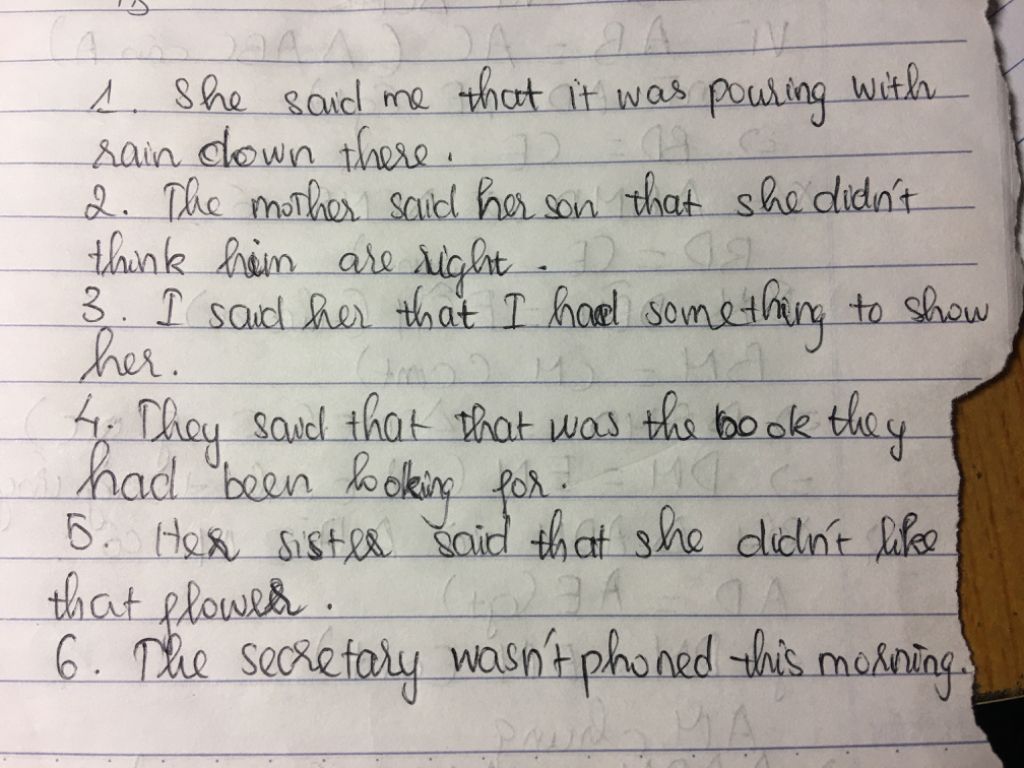 1. She said me that it was pouring with
rain down there.
2. The mother said her son that she didn't
think him are right.
3. I said her that I had something to show
her.
4. They said that that was the book they
had been looking for.
5. Her sister said that she didn't like
that flower.
6. The secretary wasn't phoned this morning.